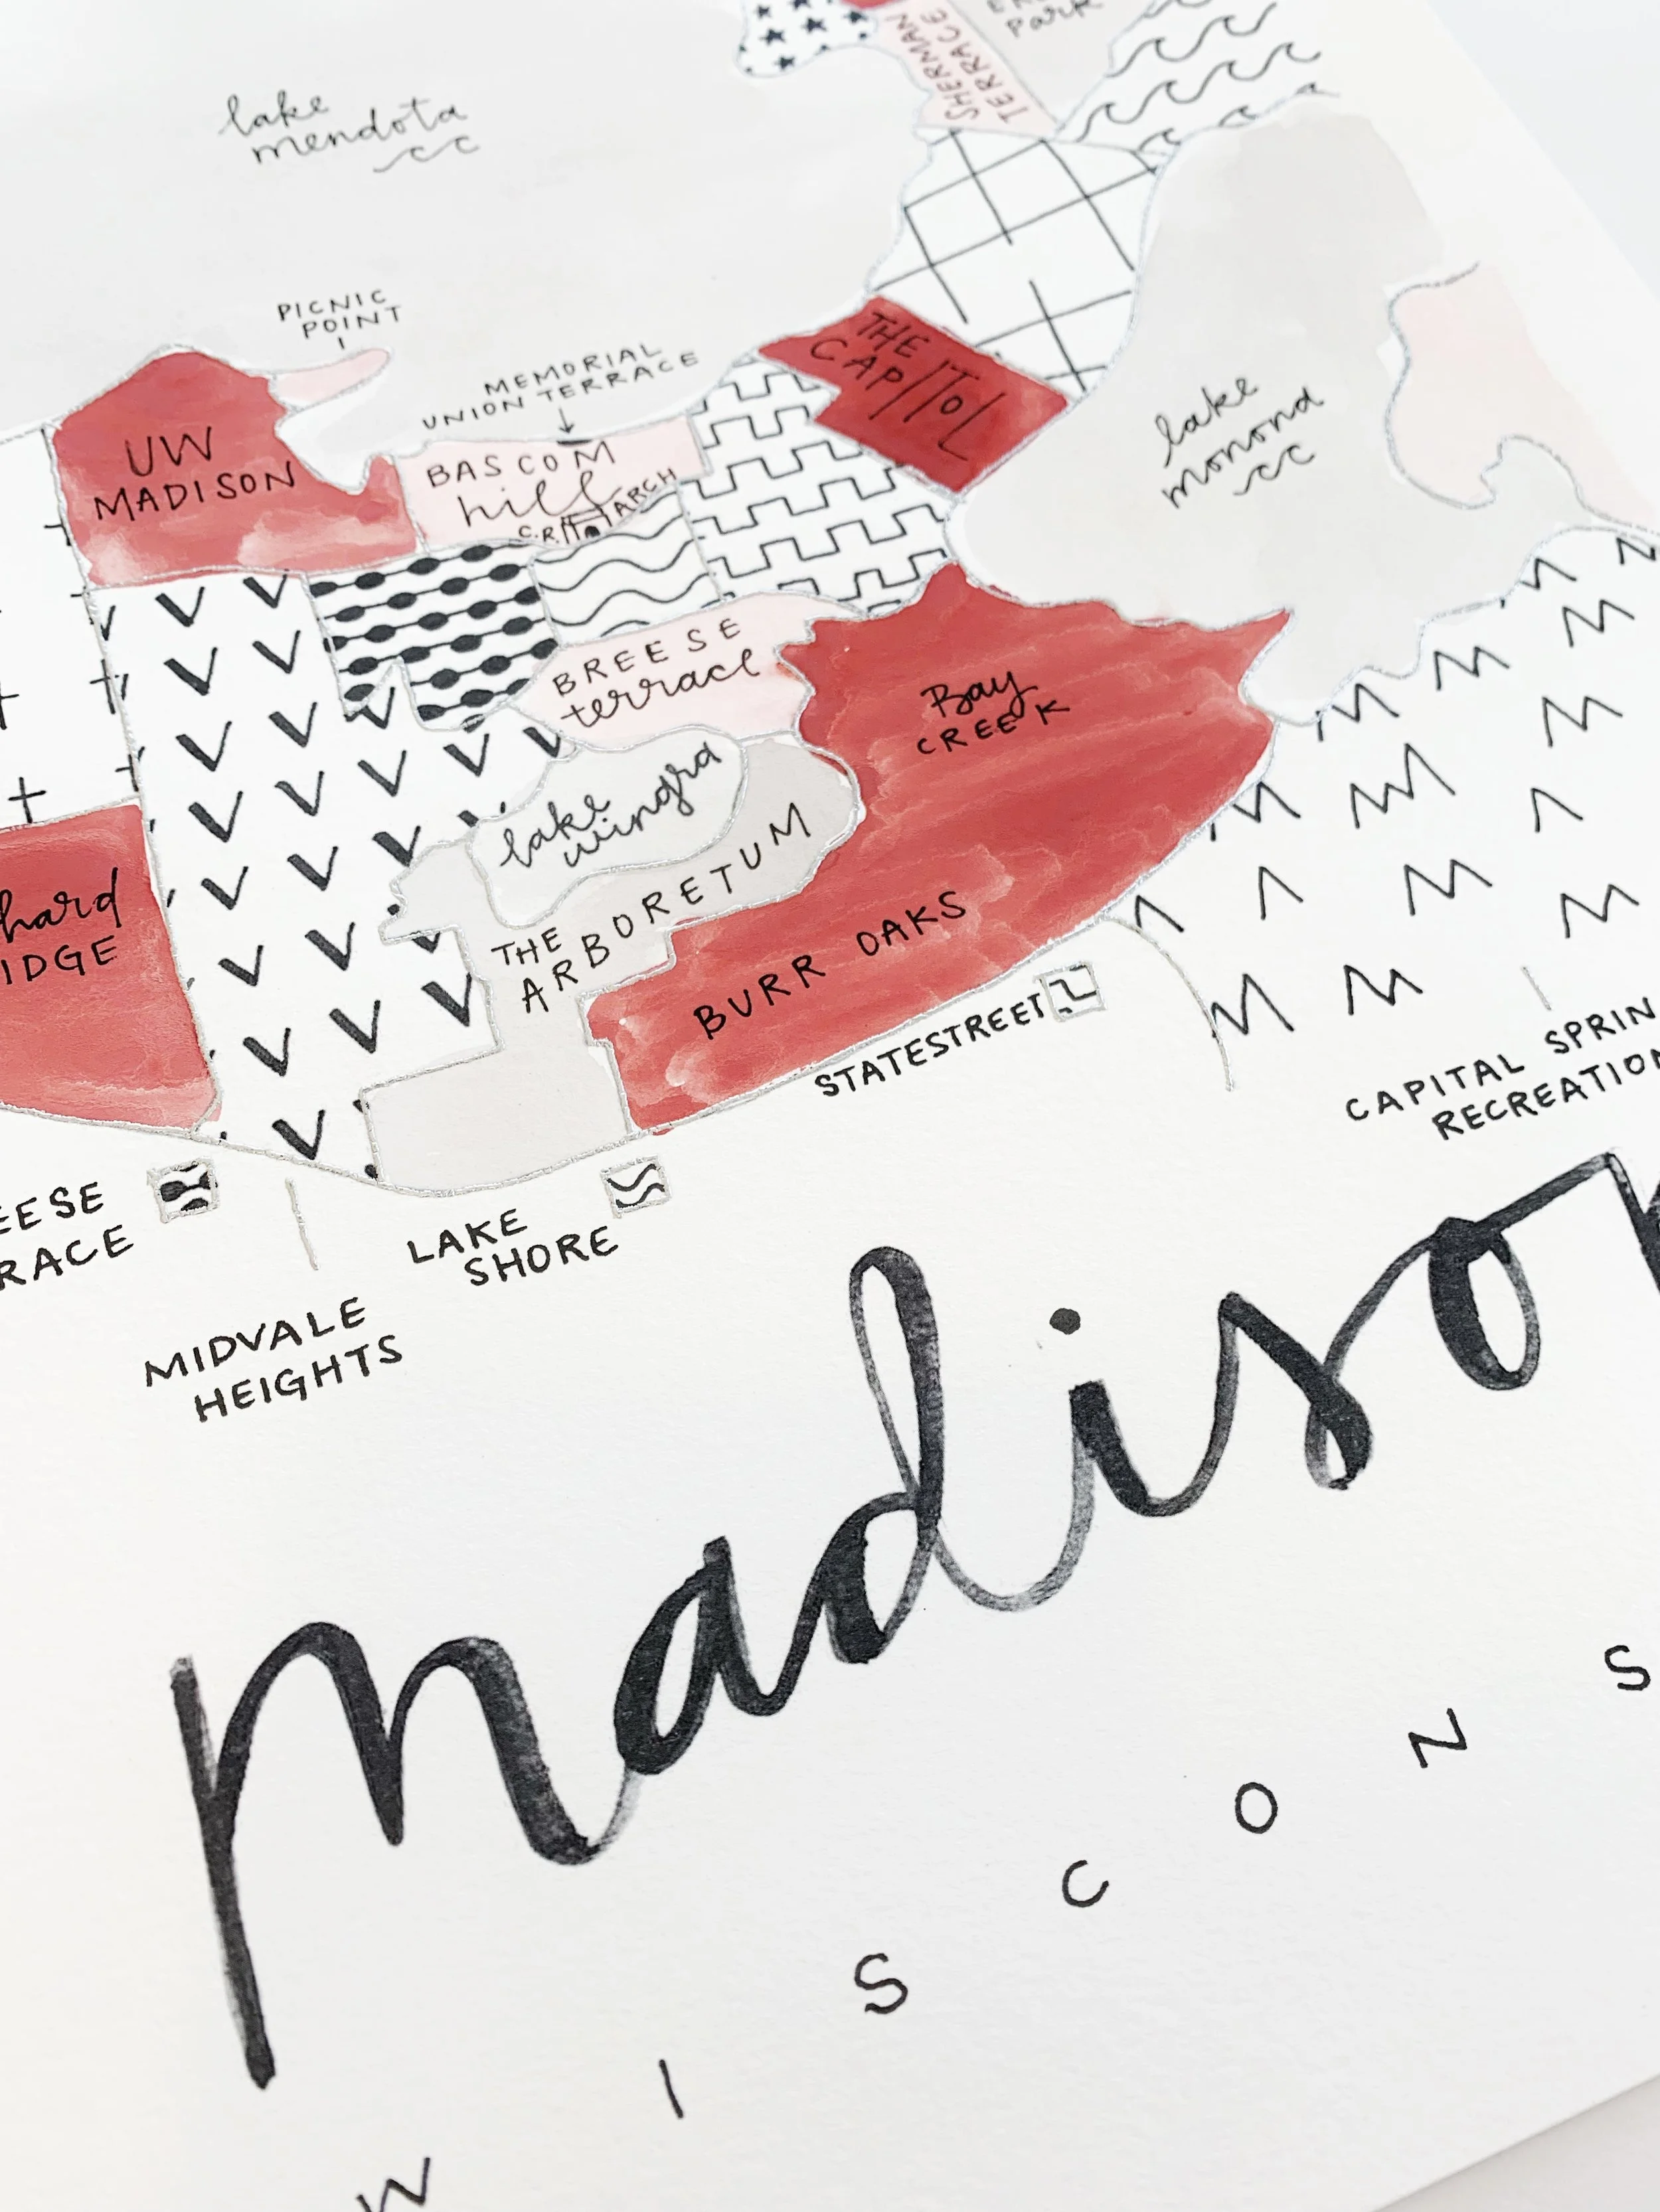 lake
mendota
SHERMAN
TERRACE
Park
PICNIC
POINT
MEMORIAL
UNION TERRACE
THE
CAPITOL
lake
monona
UW
MADISON
BASCOM
hill
C.R. ARCH
BREESE
terrace
Bay
CREEK
lake
wingra
THE
ARBORETUM
BURR OAKS
hard
IDGE
STATESTREET
CAPITAL SPRIN
RECREATION
EESE
RACE
LAKE
SHORE
MIDVALE
HEIGHTS
madison
WISCONS